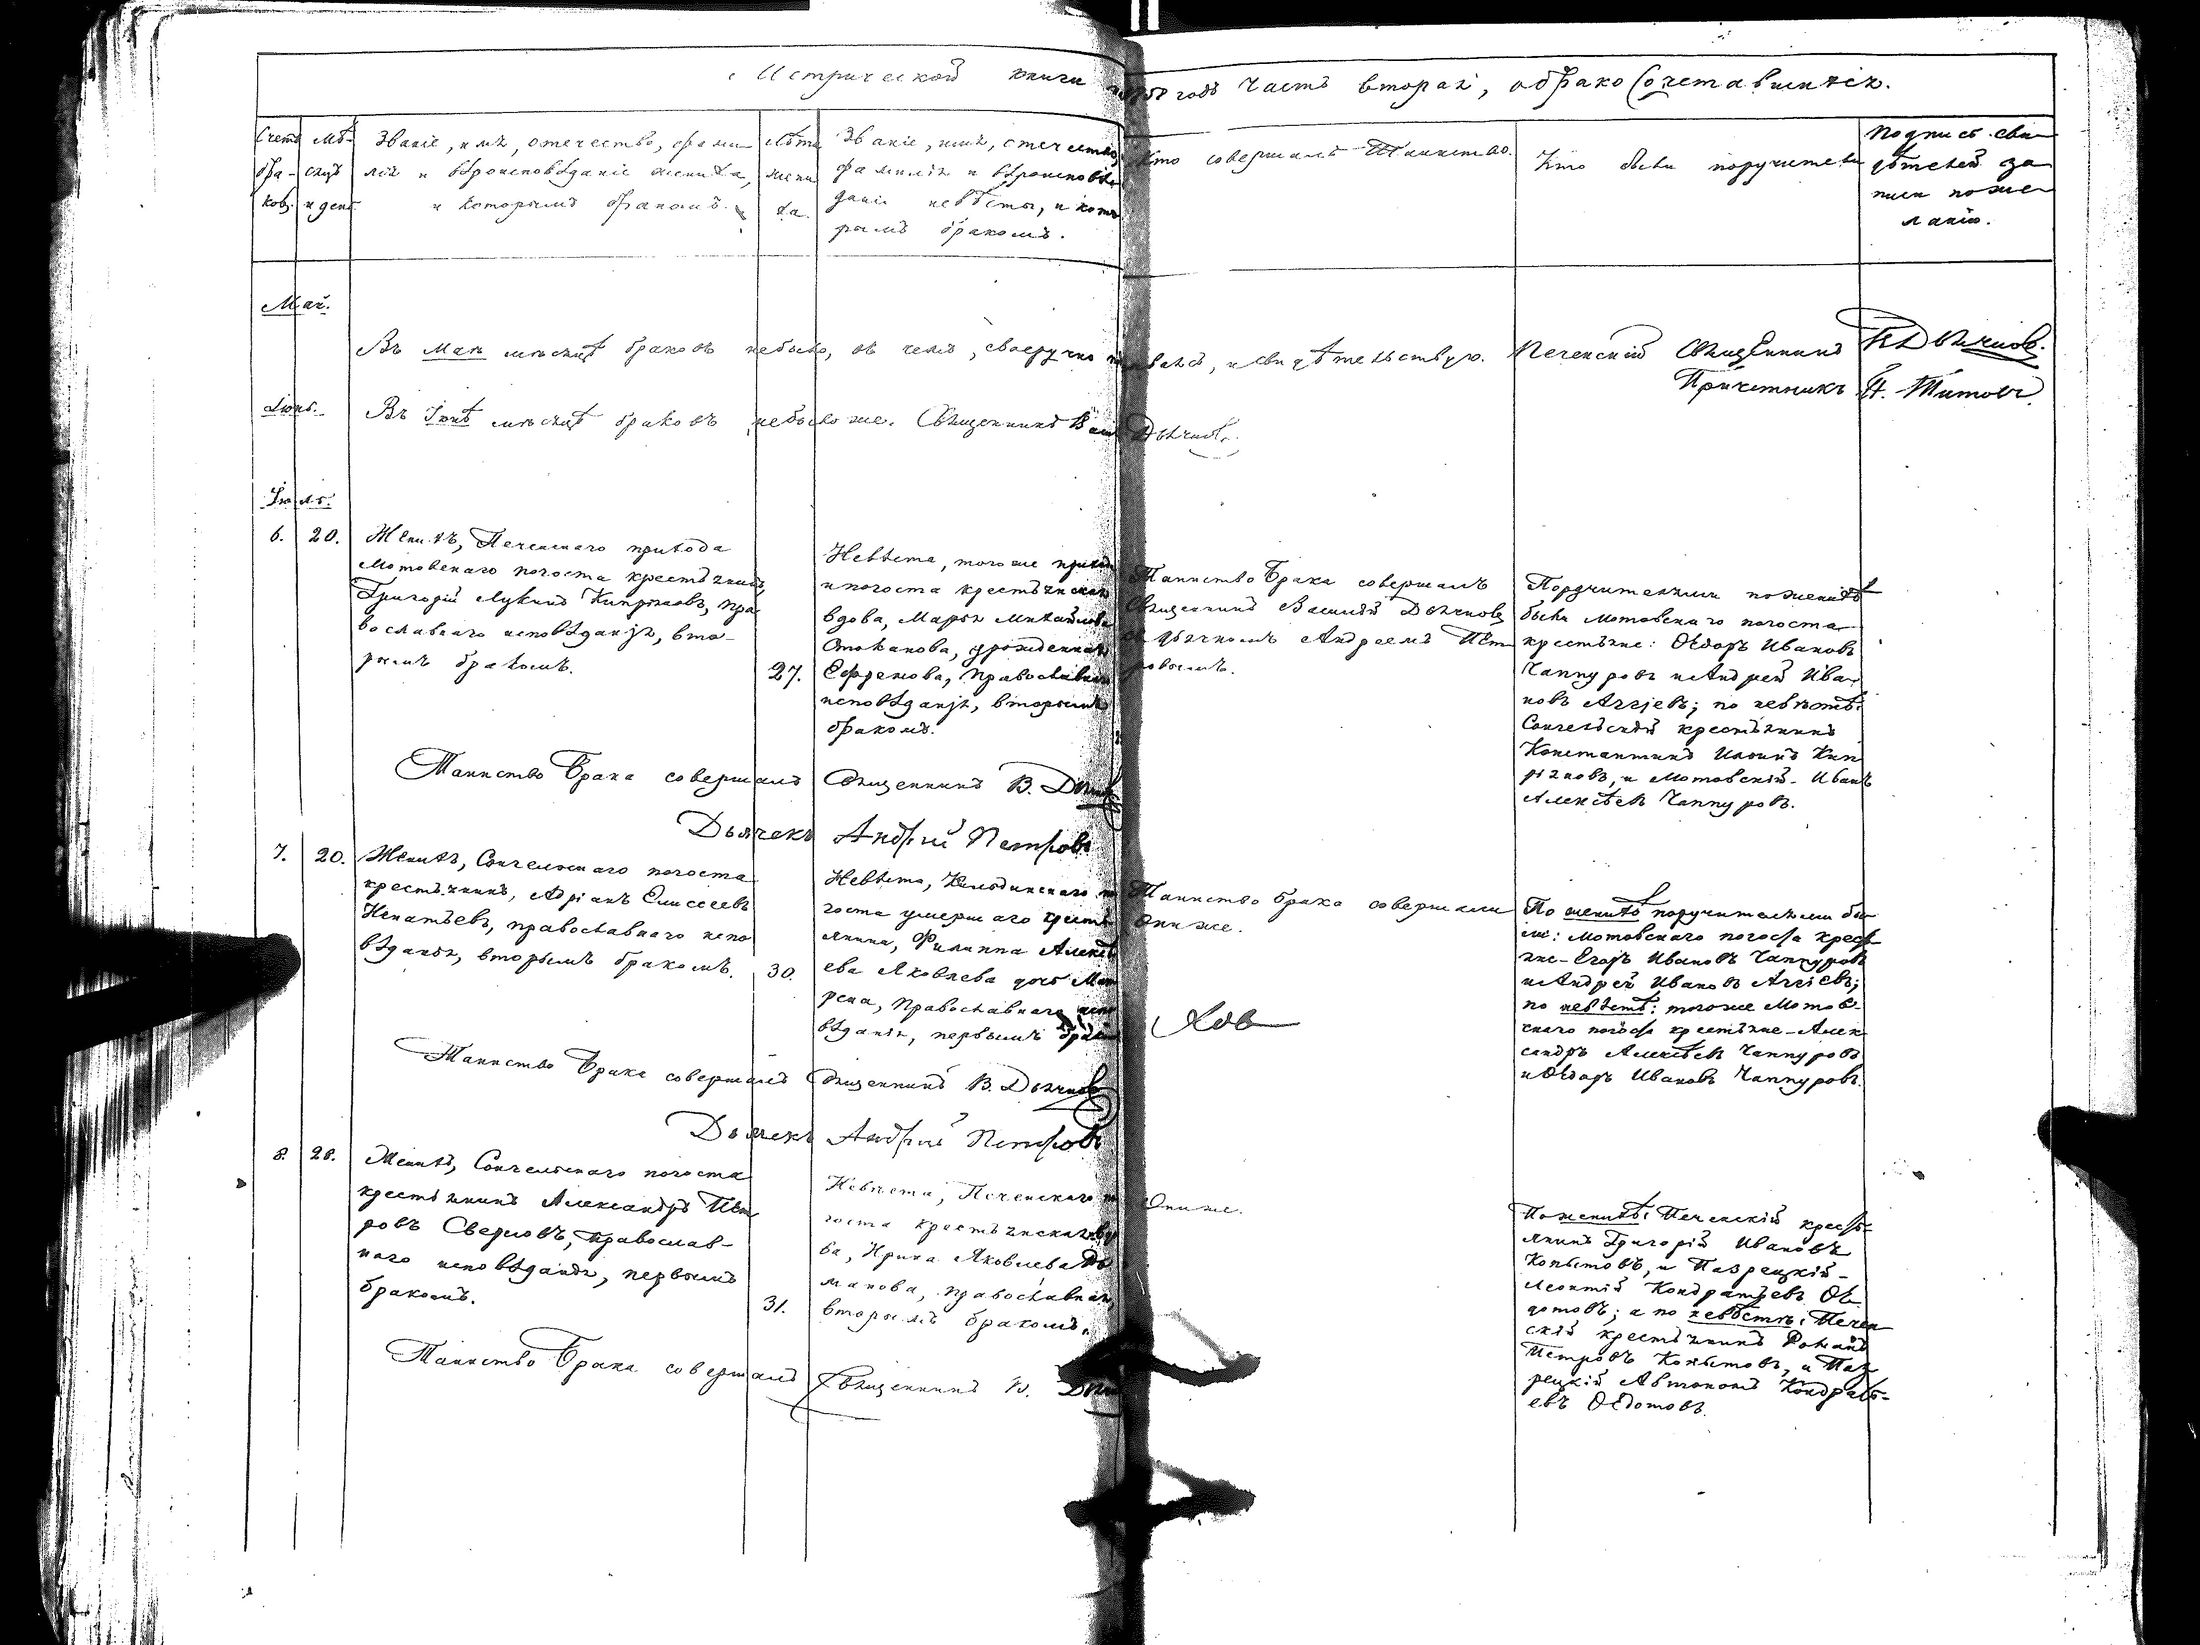 Метрической книги на 1858 годъ часть вторая, о бракосочетавшихся.
Счетъ браковъ.
Мѣсяцъ и день.
Званіе, имя, отечество, фами-
лія и вѣроисповѣданіе жениха,
и которымъ бракомъ.
Лѣта
жени-
ха.
Званіе, имя, отечество,
фамилія и вѣроисповѣ-
даніе невѣсты, и кото-
рымъ бракомъ.
Кто совершалъ Таинство.
Кто были поручители
Подпись сви-
дѣтелей за-
писи по же-
ланію.
Май.
Въ Маѣ мѣсяцѣ браковъ небыло, въ чемъ, своеручно свидѣтельствую. Печенскій Священникъ В. Дьячковъ.
Причетникъ А. Титовъ.
Іюнь.
Въ Іюнѣ мѣсяцѣ браковъ небыло же. Священникъ Вас. Дьячковъ.
Іюль.
6. 20.
Женихъ, Печенскаго прихода
Мотовскаго погоста крестьянинъ,
Григорій Лукинъ Кипріяновъ, пра-
вославнаго исповѣданія, вто-
рымъ бракомъ.
27.
Невѣста, того же прихода
и погоста крестьянская
вдова, Марья Михайлова
урожденная
Ефремова, православнаго
исповѣданія, вторымъ
бракомъ.
Таинство Брака совершалъ
Священникъ Василій Дьячковъ
съ дьячкомъ Андреемъ Пет-
ровымъ.
Поручителями по женихѣ
были Мотовскаго погоста
крестьяне: Ѳедоръ Ивановъ
Чаппуровъ и Андрей Ива-
новъ Аггіевъ; по невѣстѣ:
Сонгельскій крестьянинъ
Константинъ Кип-
ріяновъ, и Мотовскій - Иванъ
Алексѣевъ Чаппуровъ.
Таинство Брака совершалъ Священникъ В. Дьячковъ
Дьячекъ Андрей Петровъ
7. 20.
Женихъ, Сонгельскаго погоста
крестьянинъ, Адріанъ Елисеевъ
Игнатьевъ, православнаго испо-
вѣданія, вторымъ бракомъ.
30.
Невѣста, Кильдинскаго по-
госта умершаго кресть-
янина, Филиппа Алексѣ-
ева Яковлева дочь Мат-
рена, православнаго испо-
вѣданія, первымъ бракомъ
Таинство брака совершали
Они же.
По женихѣ поручителями бы-
ли: Мотовскаго погоста кресть-
яне - Егоръ Ивановъ Чаппуровъ
и Андрей Ивановъ Аггіевъ;
по невѣстѣ: того же Мотов-
скаго погоста крестьяне - Алек-
сандръ Алексѣевъ Чаппуровъ
и Ѳедоръ Ивановъ Чаппуровъ.
Таинство Брака совершалъ Священникъ В. Дьячковъ
Дьячекъ Андрей Петровъ
8. 28.
Женихъ, Сонгельскаго погоста
крестьянинъ Александръ Пет-
ровъ Сверловъ, православ-
наго исповѣданія, первымъ
бракомъ.
31.
Невѣста, Печенскаго по-
госта крестьянская вдо-
ва, Ирина Яковлева
православная,
вторымъ бракомъ.
Они же.
По женихѣ: Печенскій кресть-
янинъ Григорій Ивановъ
Копытовъ, и Пазрецкій -
Леонтій Кондратьевъ Ѳе-
дотовъ; а по невѣстѣ: Печен-
скій крестьянинъ Романъ
Петровъ Копытовъ, и Паз-
рецкій Автономъ Кондрать-
евъ Ѳедотовъ.
Таинство Брака совершалъ Священникъ В.